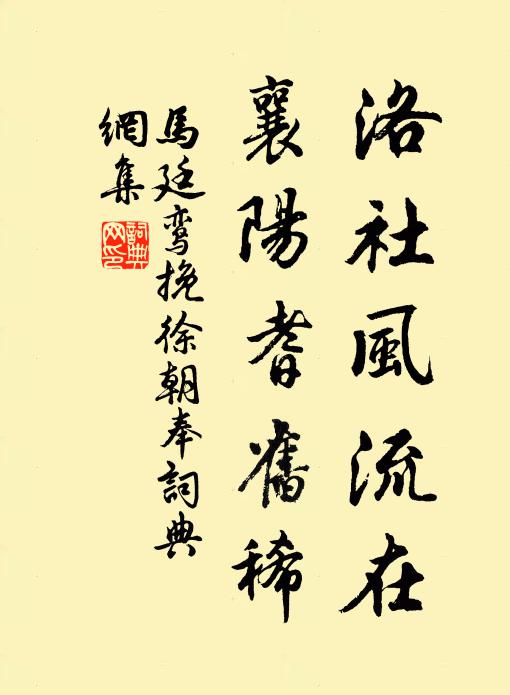 洛社風流在
襄陽耆舊稀
馬廷鸾挽徐朝奉詞典
網集
詞典網印